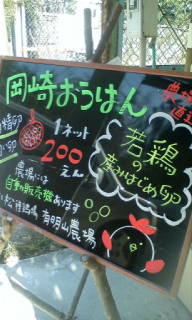 岡崎おうはん
農場
直
精卵
1ネット
200
えん
若鶏
の
産みはじめ卵
農場には
自動販売機あります
有明山農場